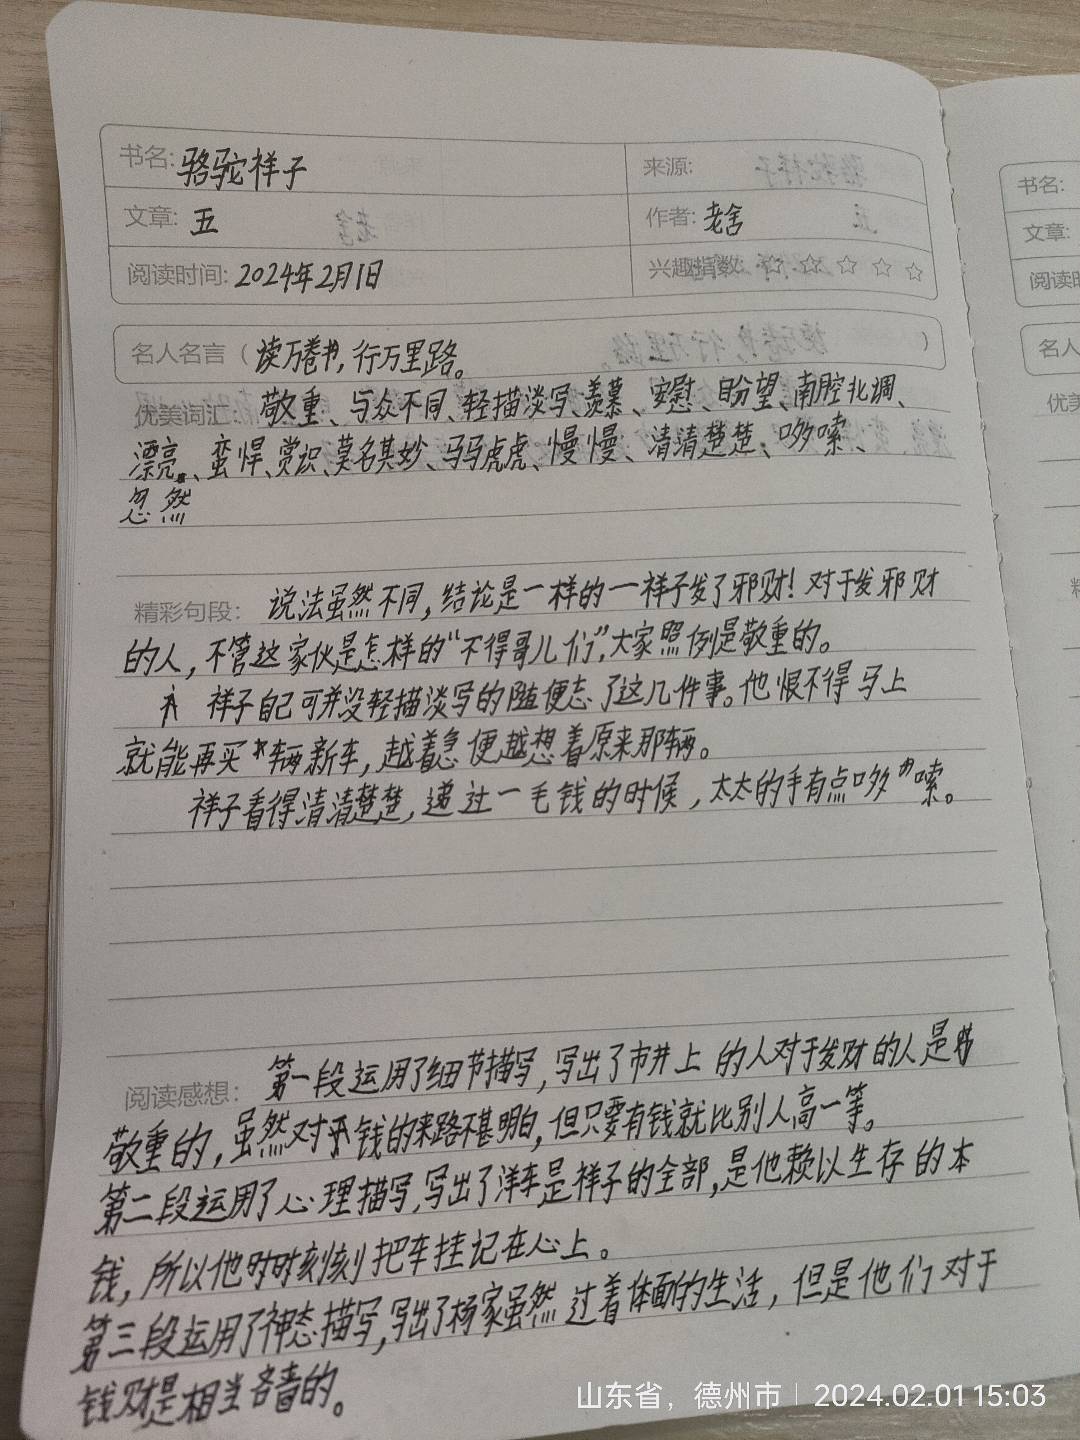 书名: 骆驼祥子
来源:
书名:
文章: 五
作者: 老舍
文章:
阅读时间: 2024年2月1日
兴趣指数: ☆ ☆ ☆ ☆ ☆
名人名言（读万卷书,行万里路。）
名人
优美词汇: 敬重、与众不同、轻描淡写、羡慕、安慰、盼望、南腔北调、
漂亮、蛮悍、赏识、莫名其妙、马马虎虎、慢慢、清清楚楚、哆嗦、
忽然
精彩句段: 说法虽然不同,结论是一样的—祥子发了邪财!对于发邪财
的人,不管这家伙是怎样的“不得哥儿们”,大家照例是敬重的。
祥子自己可并没轻描淡写的随便忘了这几件事。他恨不得马上
就能再买辆新车,越着急便越想着原来那辆。
祥子看得清清楚楚,递过一毛钱的时候,太太的手有点哆嗦。
阅读感想: 第一段运用了细节描写,写出了市井上的人对于发财的人是
敬重的,虽然对于钱的来路不甚明白,但只要有钱就比别人高一等。
第二段运用了心理描写,写出了洋车是祥子的全部,是他赖以生存的本
钱,所以他时时刻刻把车挂记在心上。
第三段运用了神态描写,写出了杨家虽然过着体面的生活,但是他们对于
钱财是相当吝啬的。
山东省，德州市 | 2024.02.01 15:03